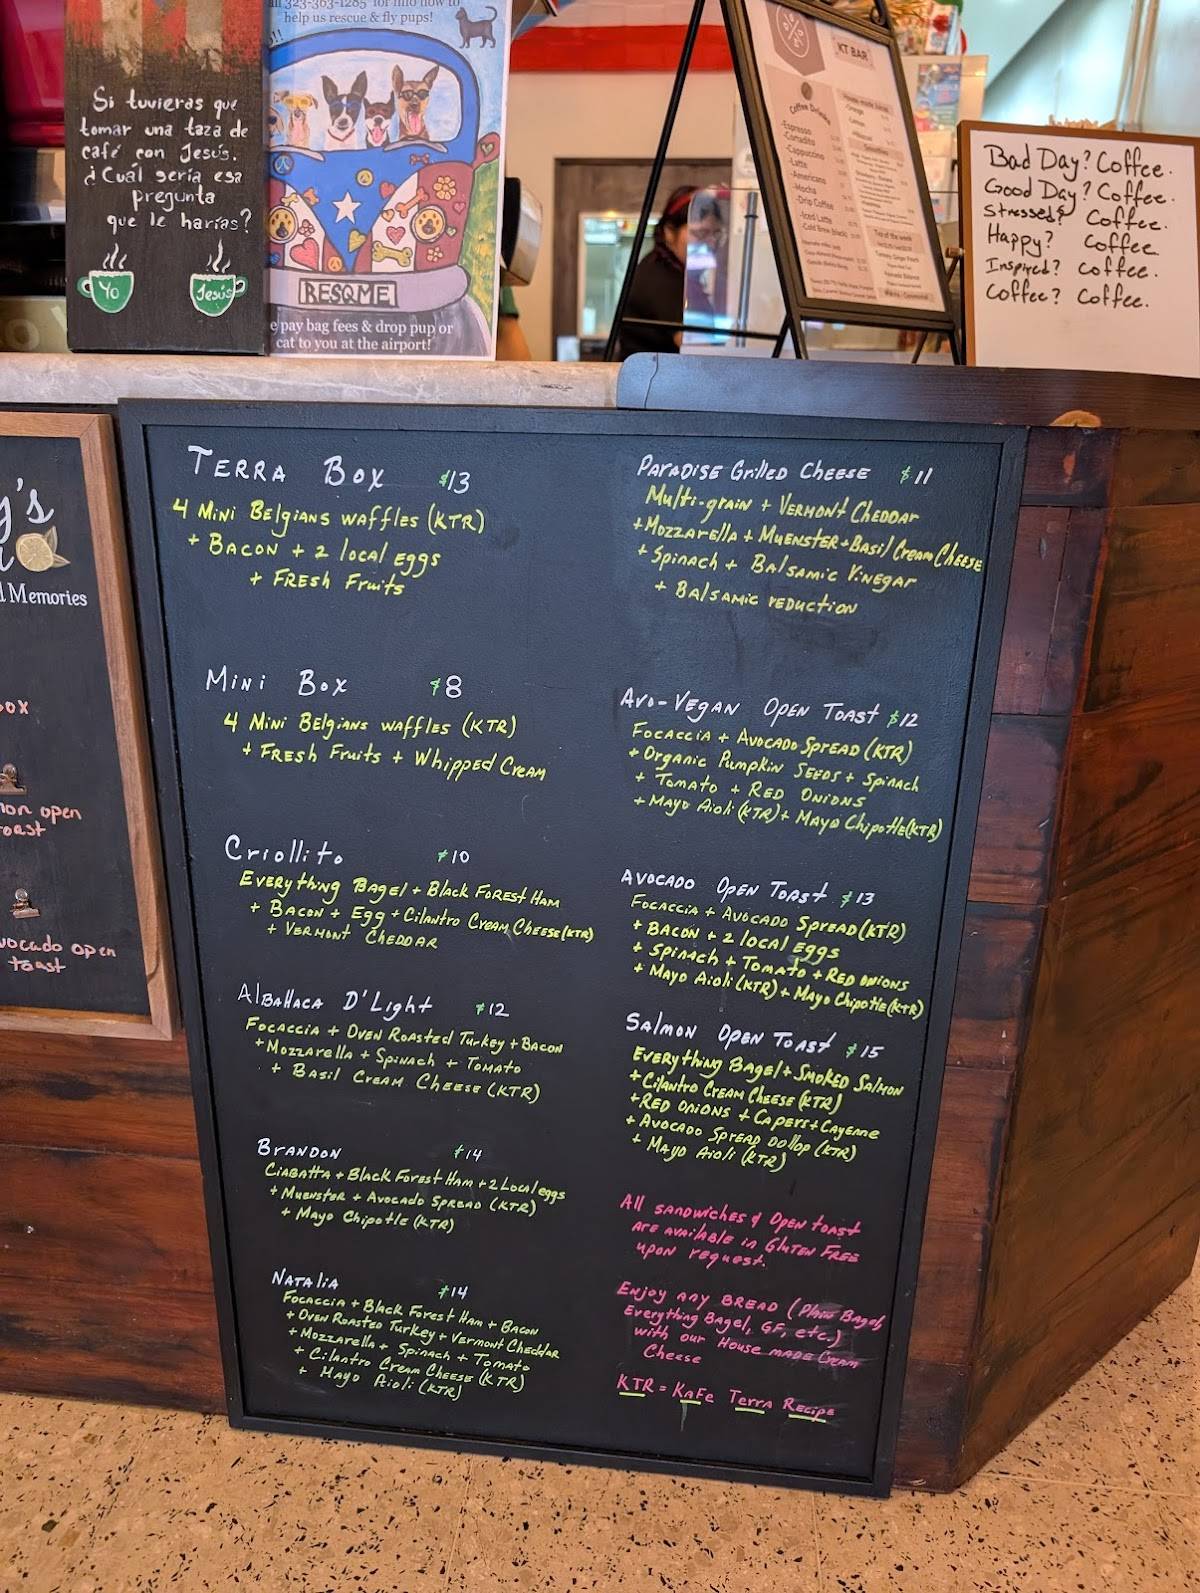 Si tuvieras que
tomar una taza de
café con Jesús.
¿Cuál sería esa
pregunta
que le harías?
Yo
Jesús
all 323-363-1285 for info how to
help us rescue & fly pups!
RESQME
e pay bag fees & drop pup or
cat to you at the airport!
KT BAR
Coffee Drinks
-Espresso
-Cortadito
-Cappuccino
-Latte
-Americano
-Mocha
-Drip Coffee
-Iced Latte
-Cold Brew
Smoothies
Bad Day? Coffee.
Good Day? Coffee.
Stressed? Coffee.
Happy? Coffee
Inspired? Coffee.
Coffee? Coffee.
y's
d Memories
ox
mon open
toast
vocado open
toast
TERRA BOX $13
4 Mini Belgians waffles (KTR)
+ Bacon + 2 local eggs
+ Fresh Fruits
Mini Box $8
4 Mini Belgians waffles (KTR)
+ Fresh Fruits + Whipped Cream
Criollito $10
Everything Bagel + Black Forest Ham
+ Bacon + Egg + Cilantro Cream Cheese (KTR)
+ Vermont Cheddar
Albahaca D'Light $12
Focaccia + Oven Roasted Turkey + Bacon
+ Mozzarella + Spinach + Tomato
+ Basil Cream Cheese (KTR)
Brandon $14
Ciabatta + Black Forest Ham + 2 Local eggs
+ Muenster + Avocado Spread (KTR)
+ Mayo Chipotle (KTR)
Natalia $14
Focaccia + Black Forest Ham + Bacon
+ Oven Roasted Turkey + Vermont Cheddar
+ Mozzarella + Spinach + Tomato
+ Cilantro Cream Cheese (KTR)
+ Mayo Aioli (KTR)
Paradise Grilled Cheese $11
Multi-grain + Vermont Cheddar
+ Mozzarella + Muenster + Basil Cream Cheese
+ Spinach + Balsamic Vinegar
+ Balsamic reduction
Avo-Vegan Open Toast $12
Focaccia + Avocado Spread (KTR)
+ Organic Pumpkin Seeds + Spinach
+ Tomato + Red Onions
+ Mayo Aioli (KTR) + Mayo Chipotle (KTR)
Avocado Open Toast $13
Focaccia + Avocado Spread (KTR)
+ Bacon + 2 local Eggs
+ Spinach + Tomato + Red onions
+ Mayo Aioli (KTR) + Mayo Chipotle (KTR)
Salmon Open Toast $15
Everything Bagel + Smoked Salmon
+ Cilantro Cream Cheese (KTR)
+ Red onions + Capers + Cayenne
+ Avocado Spread Dollop (KTR)
+ Mayo Aioli (KTR)
All sandwiches & Open toast
are available in Gluten Free
upon request.
Enjoy any bread (Plain Bagel,
Everything Bagel, GF, etc.)
with our House made Cream
Cheese
KTR = KaFe Terra Recipe